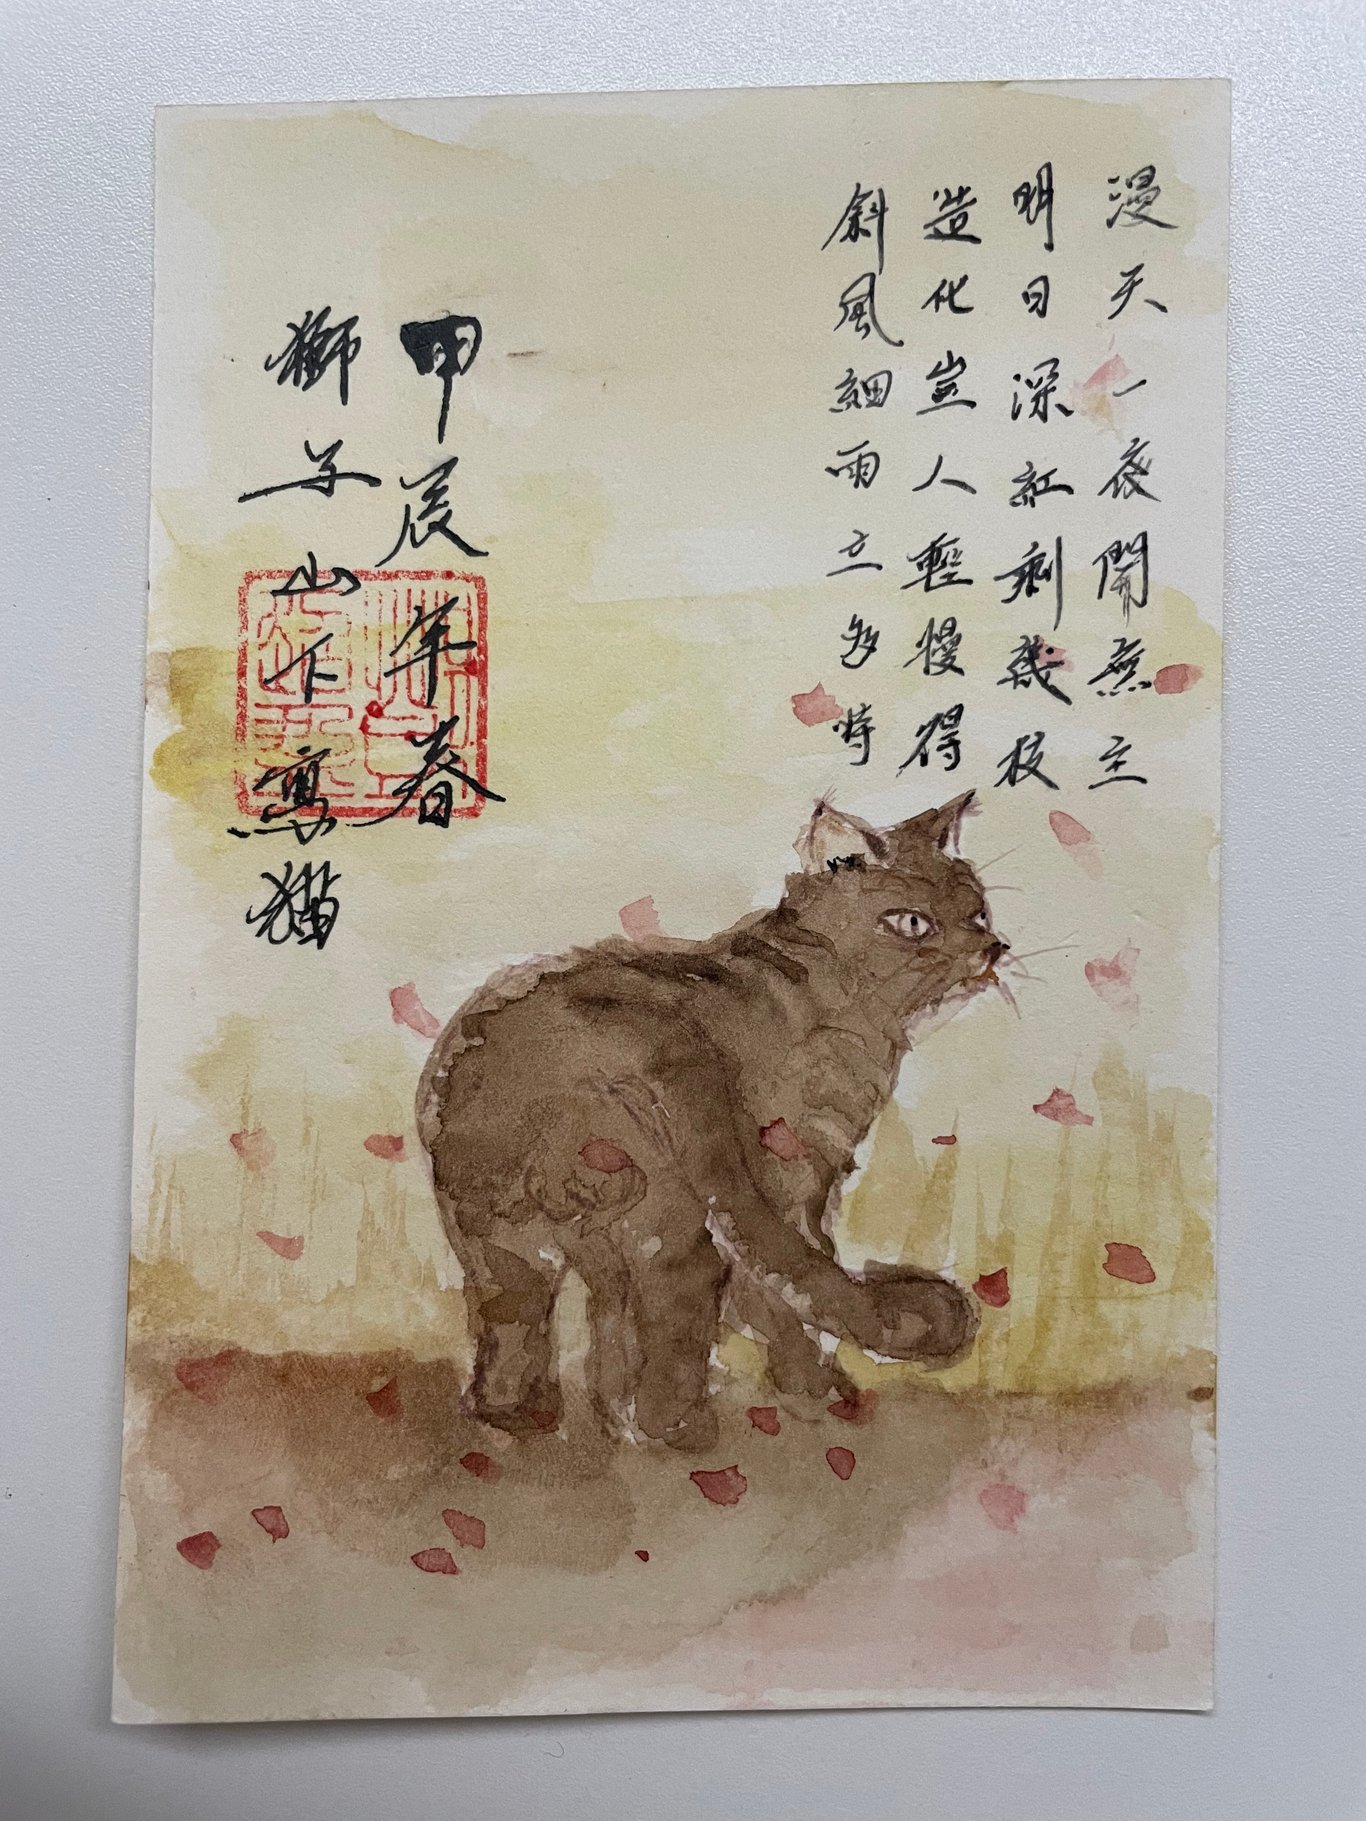 漫天一夜開無主
明日深紅剩幾枝
造化豈人輕慢得
斜風細雨立多時
甲辰年春
獅子山下寫貓